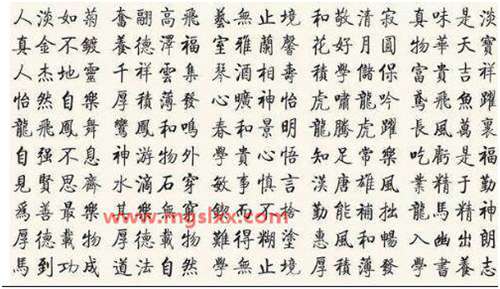 人淡如菊 奮翮高飛 藝無止境 和敬清寂 真味是淡
真金不鍍 養德澤福 室雅蘭馨 花好月圓 物華天寶
人杰地靈 千祥雲集 琴酒相壽 學儲保 富貴吉祥
怡然自樂 厚積薄發 曠神怡 虎嘯龍吟 鳶飛魚躍
龍飛鳳舞 鸞鳳和鳴 春和景明 龍騰虎躍 長風萬里
自强不息 神游物外 學貴心悟 知足常樂 吃虧是福
見賢思齊 水滴石穿 敏事慎言 漢唐雄風 業精于勤
為善最樂 勤能補拙 龍馬精神
www.mgslxx.com
厚德載物 厚德載物 難得糊塗 惠風和暢 入幽出朗
馬到功成 道法自然 學無止境 厚積薄發 學書養志